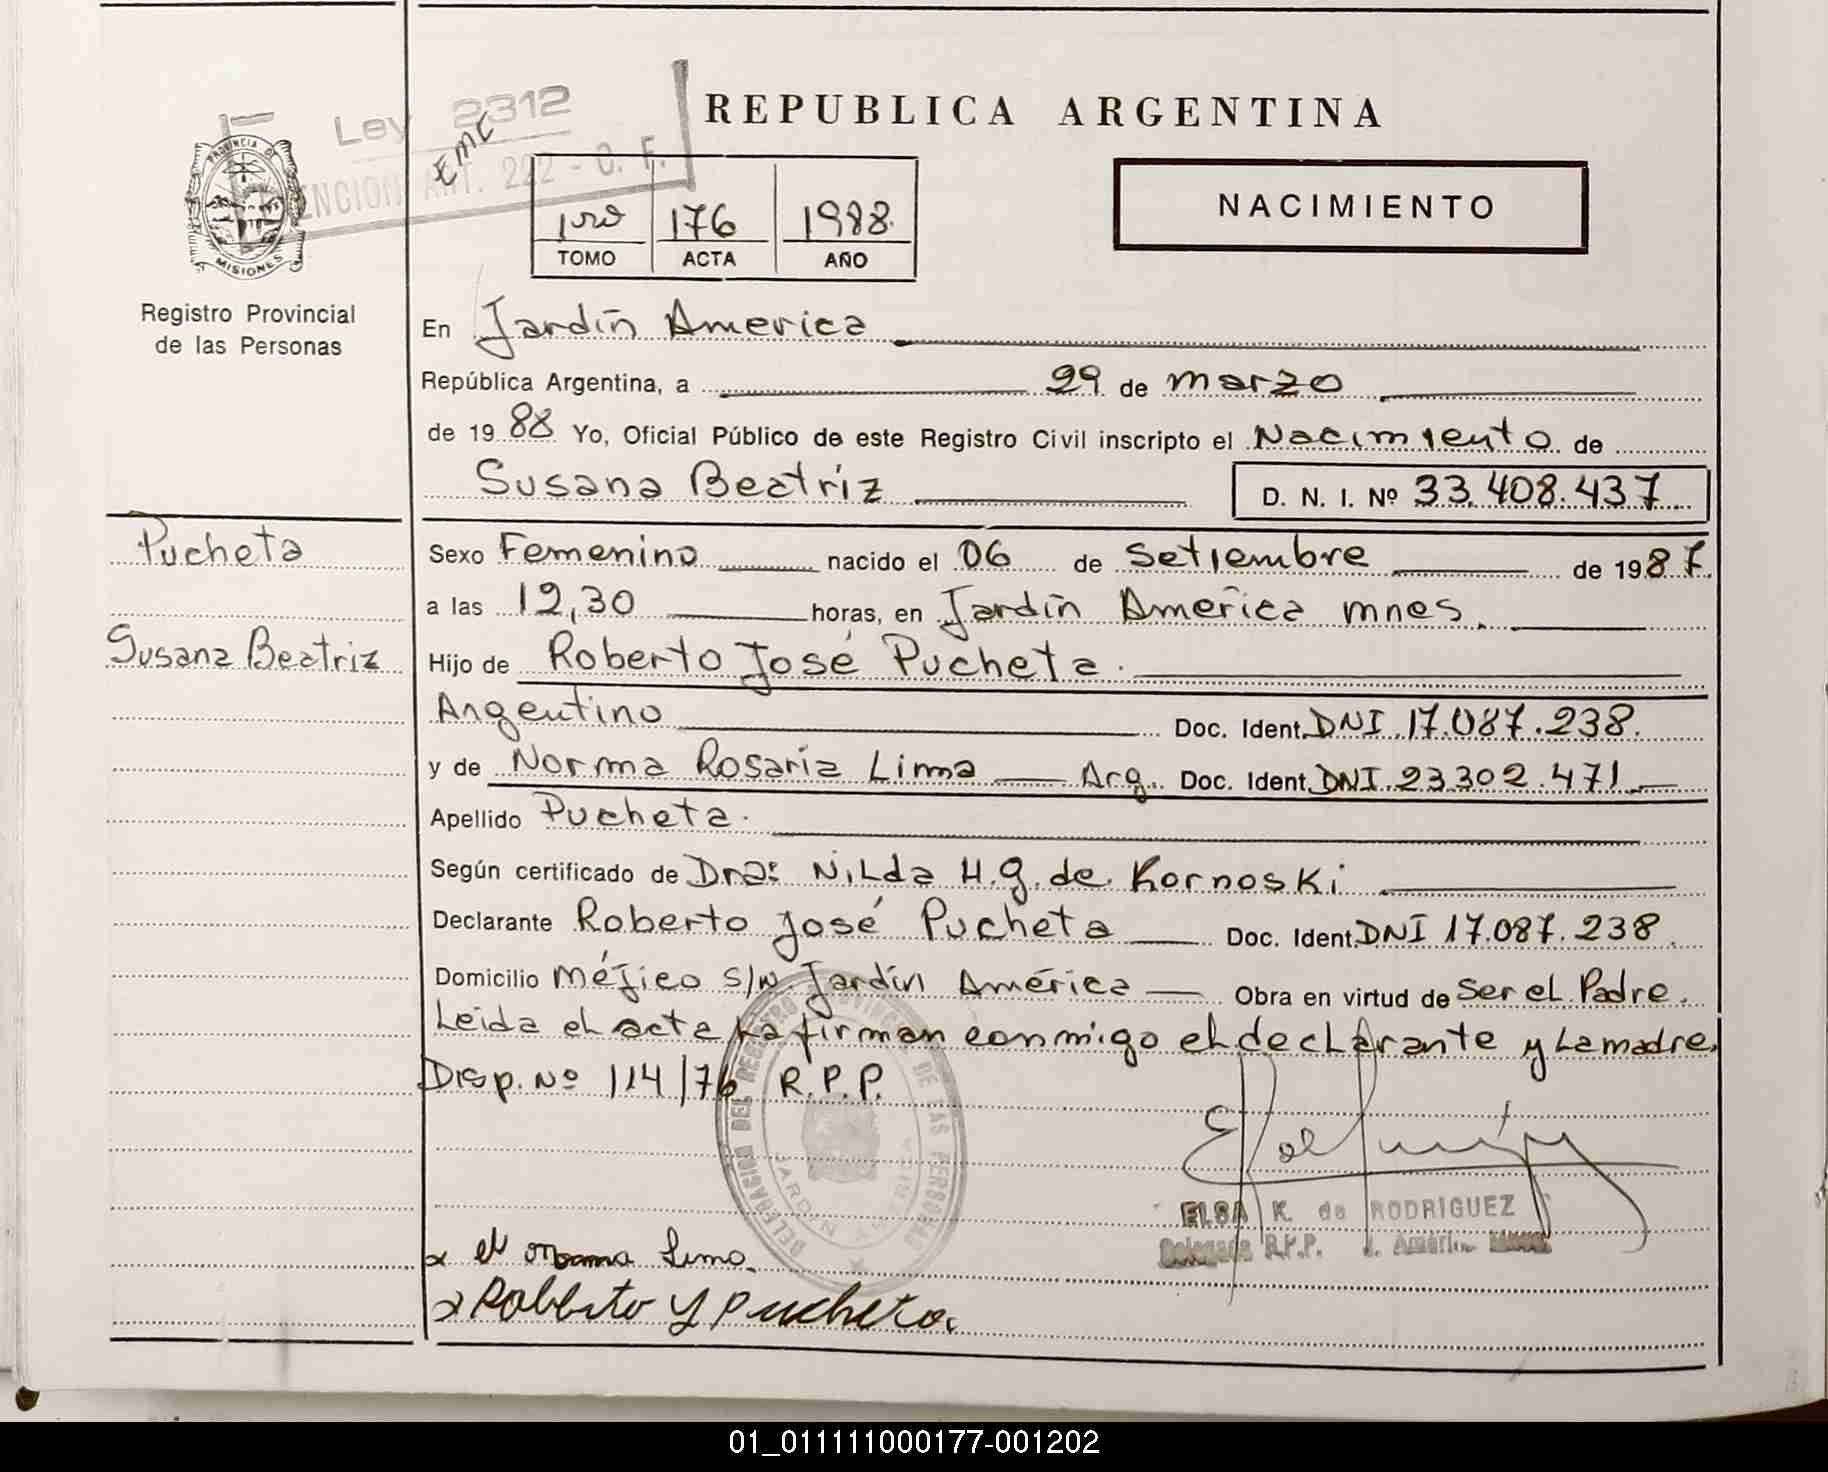 Ley 2312
EMC
ENCION ART. 222 - C. F.
REPUBLICA ARGENTINA
PROVINCIA DE
MISIONES
1ro 176 1988
TOMO ACTA AÑO
NACIMIENTO
Registro Provincial
de las Personas
En Jardín America
República Argentina, a 29 de marzo
de 1988 Yo, Oficial Público de este Registro Civil inscripto el Nacimiento de
Susana Beatriz D. N. I. Nº 33.408.437
Pucheta
Susana Beatriz
Sexo Femenino nacido el 06 de Setiembre de 1987.
a las 12,30 horas, en Jardín America mnes.
Hijo de Roberto José Pucheta.
Argentino Doc. Ident. DNI 17.087.238.
y de Norma Rosaria Lima Arg. Doc. Ident. DNI 23.302.471
Apellido Pucheta.
Según certificado de Dra: Nilda H.G. de Kornoski
Declarante Roberto José Pucheta Doc. Ident. DNI 17.087.238
Domicilio Méjico s/n Jardín América Obra en virtud de ser el Padre.
Leida el acta la firman conmigo el declarante y la madre.
Disp. Nº 114/76 R.P.P.
DELEGACION DEL REGISTRO PROVINCIAL DE LAS PERSONAS
JARDIN AMERICA
ELSA K. de RODRIGUEZ
Delegada R.P.P. J. América
x Norma Lima.
x Robberto y pucheta.
01_011111000177-001202